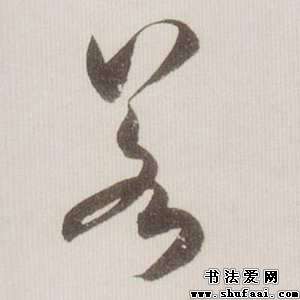 若
书法爱网
www.shufaai.com